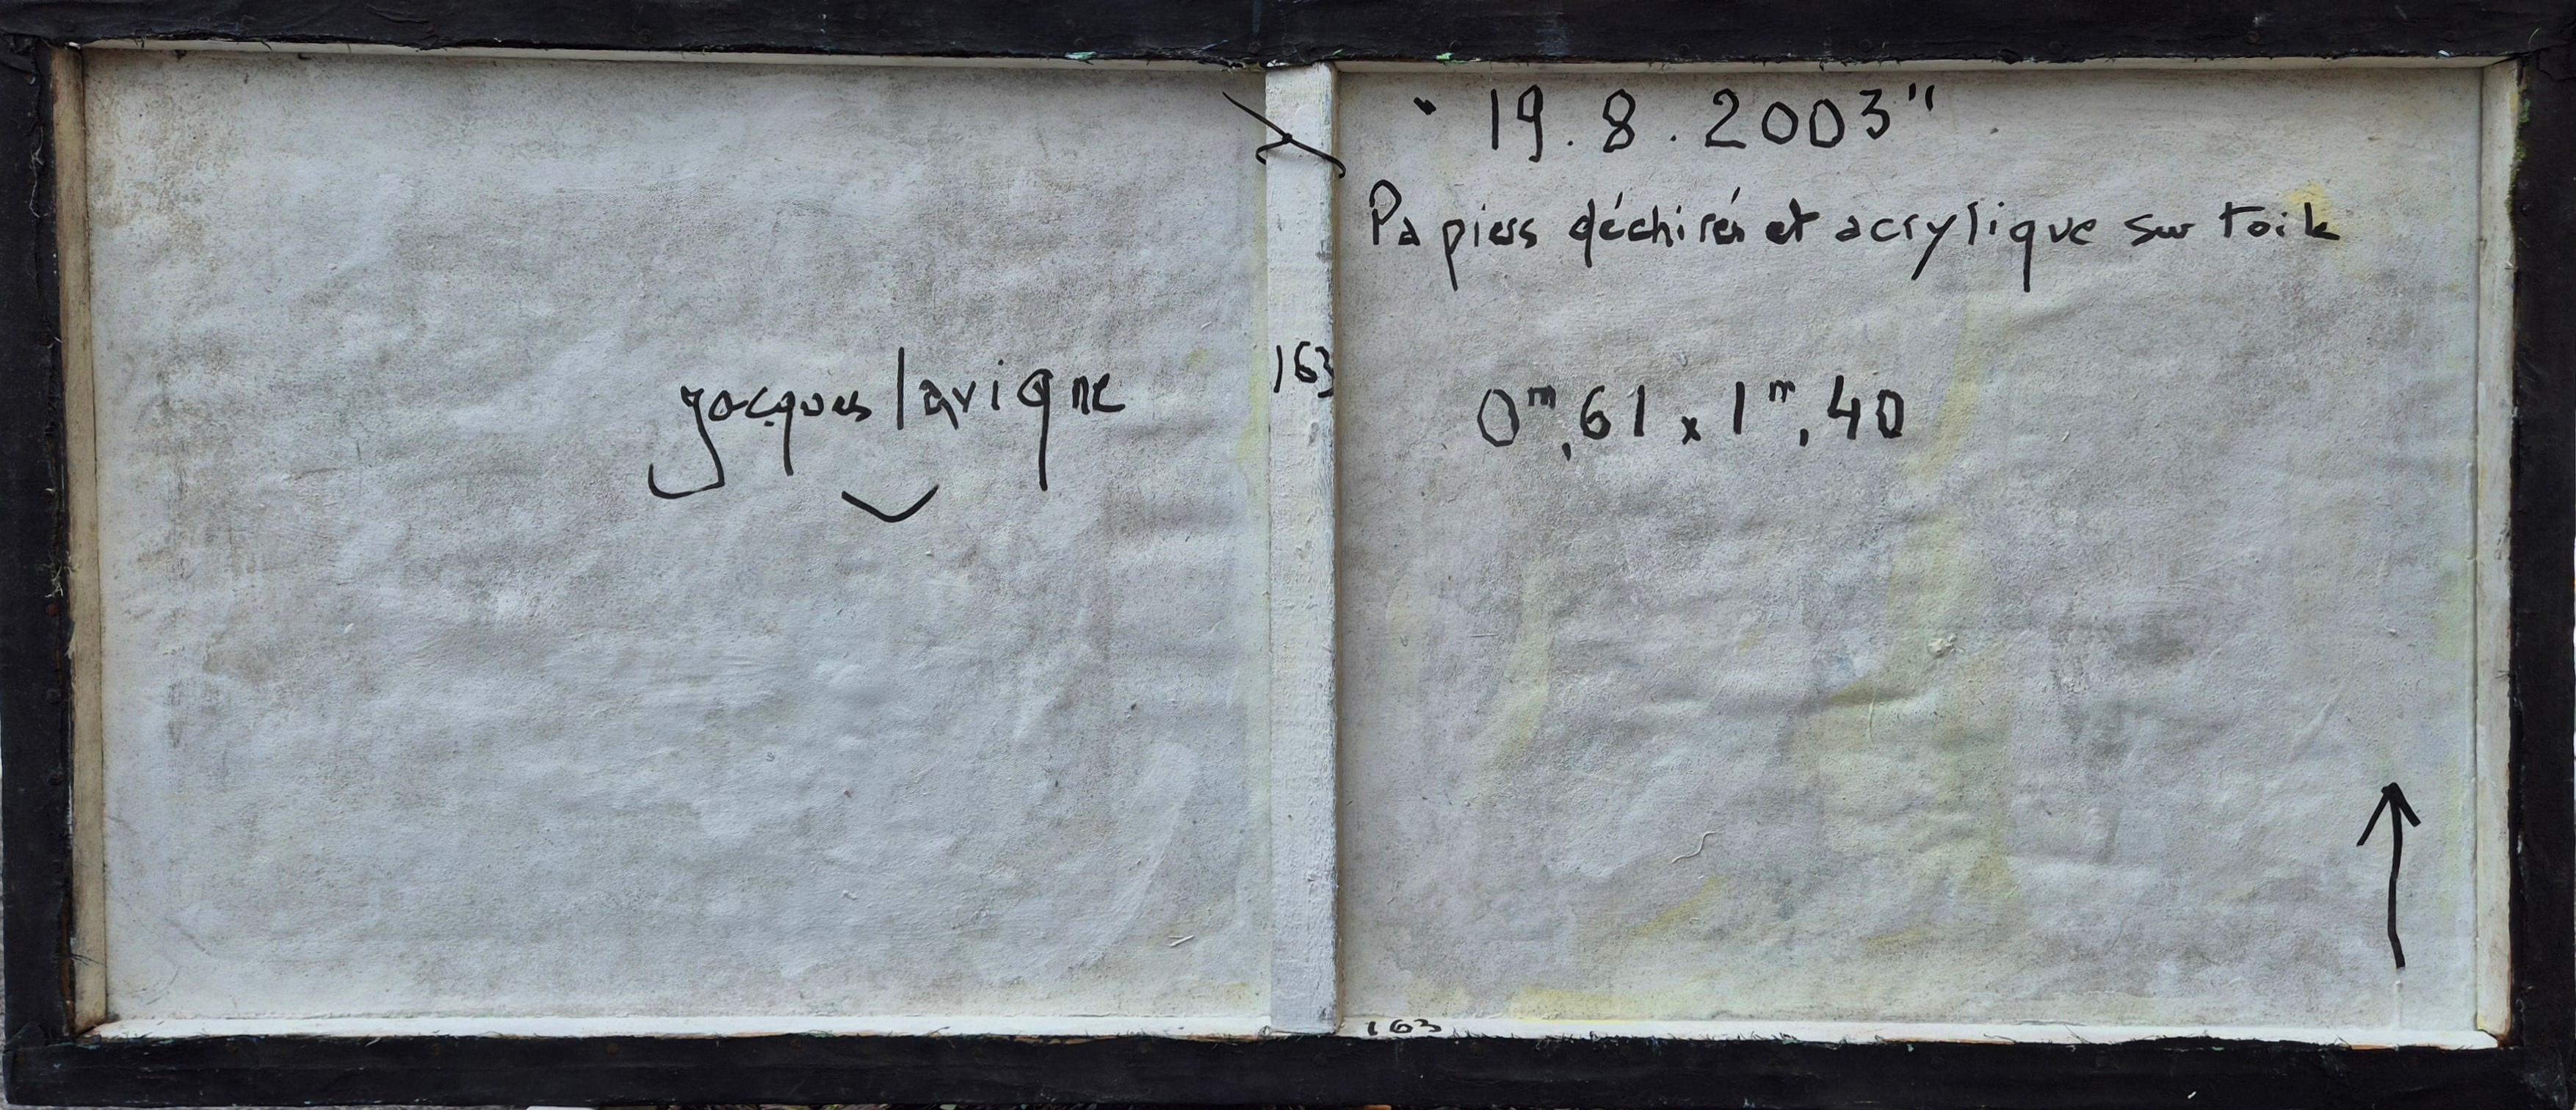 " 19.8.2003"
Papiers déchirés et acrylique sur toile
jacques lavigne
163
0m,61 x 1m,40
163